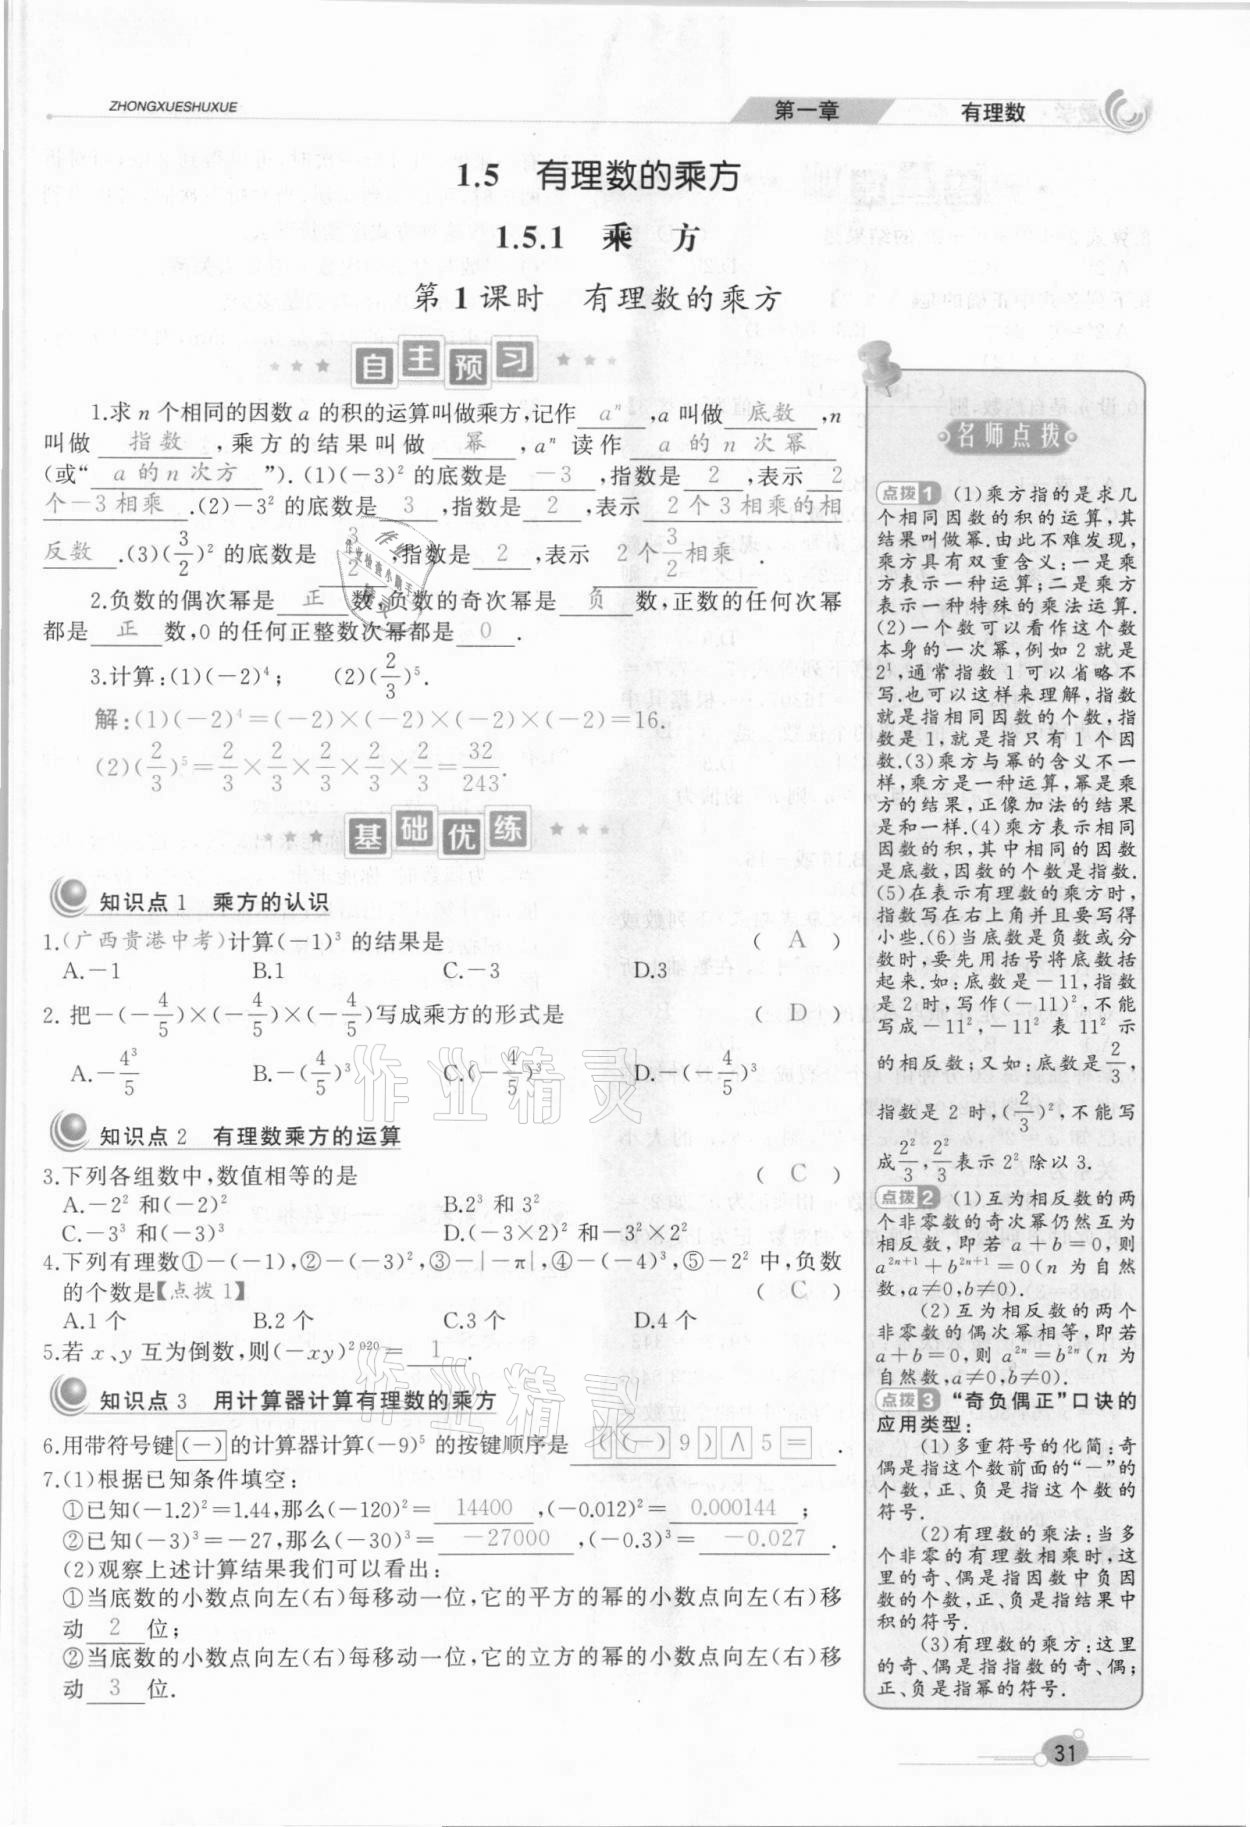 ZHONGXUESHUXUE
第一章 有理数
1.5 有理数的乘方
1.5.1 乘 方
第1课时 有理数的乘方
自主预习
1.求 n 个相同的因数 a 的积的运算叫做乘方,记作 aⁿ ,a 叫做 底数 ,n
叫做 指数 ,乘方的结果叫做 幂 ,aⁿ 读作 a 的 n 次幂
(或“ a 的 n 次方 ”).(1)(-3)² 的底数是 -3 ,指数是 2 ,表示 2
个-3相乘 .(2)-3² 的底数是 3 ,指数是 2 ,表示 2个3相乘的相
反数 .(3)(3/2)² 的底数是 3/2 ,指数是 2 ,表示 2个3/2相乘 .
2.负数的偶次幂是 正 数,负数的奇次幂是 负 数,正数的任何次幂
都是 正 数,0 的任何正整数次幂都是 0 .
3.计算:(1)(-2)⁴; (2)(2/3)⁵.
解:(1)(-2)⁴=(-2)×(-2)×(-2)×(-2)=16.
(2)(2/3)⁵=2/3×2/3×2/3×2/3×2/3=32/243.
基础优练
知识点1 乘方的认识
1.(广西贵港中考)计算(-1)³ 的结果是 ( A )
A.-1 B.1 C.-3 D.3
2. 把-(-4/5)×(-4/5)×(-4/5)写成乘方的形式是 ( D )
A.-4³/5 B.-(4/5)³ C.(-4/5)³ D.-(-4/5)³
知识点2 有理数乘方的运算
3.下列各组数中,数值相等的是 ( C )
A.-2² 和(-2)² B.2³ 和 3²
C.-3³ 和(-3)³ D.(-3×2)² 和-3²×2²
4.下列有理数①-(-1),②-(-3)²,③-|-π|,④-(-4)³,⑤-2² 中,负数
的个数是【点拨1】 ( C )
A.1 个 B.2 个 C.3 个 D.4 个
5.若 x、y 互为倒数,则(-xy)²⁰²⁰= 1 .
知识点3 用计算器计算有理数的乘方
6.用带符号键(-)的计算器计算(-9)⁵ 的按键顺序是 ( (-) 9 ) ∧ 5 = .
7.(1)根据已知条件填空:
①已知(-1.2)²=1.44,那么(-120)²= 14400 ,(-0.012)²= 0.000144 ;
②已知(-3)³=-27,那么(-30)³= -27000 ,(-0.3)³= -0.027 .
(2)观察上述计算结果我们可以看出:
①当底数的小数点向左(右)每移动一位,它的平方的幂的小数点向左(右)移
动 2 位;
②当底数的小数点向左(右)每移动一位,它的立方的幂的小数点向左(右)移
动 3 位.
名师点拨
点拨1 (1)乘方指的是求几
个相同因数的积的运算,其
结果叫做幂.由此不难发现,
乘方具有双重含义:一是乘
方表示一种运算;二是乘方
表示一种特殊的乘法运算.
(2)一个数可以看作这个数
本身的一次幂,例如 2 就是
2¹,通常指数 1 可以省略不
写.也可以这样来理解,指数
就是指相同因数的个数,指
数是 1,就是指只有 1 个因
数.(3)乘方与幂的含义不一
样,乘方是一种运算,幂是乘
方的结果,正像加法的结果
是和一样.(4)乘方表示相同
因数的积,其中相同的因数
是底数,因数的个数是指数.
(5)在表示有理数的乘方时,
指数写在右上角并且要写得
小些.(6)当底数是负数或分
数时,要先用括号将底数括
起来.如:底数是-11,指数
是 2 时,写作(-11)²,不能
写成-11²,-11² 表 11² 示
的相反数;又如:底数是2/3,
指数是 2 时,(2/3)²,不能写
成2²/3,2²/3表示 2² 除以 3.
点拨2 (1)互为相反数的两
个非零数的奇次幂仍然互为
相反数,即若 a+b=0,则
a²ⁿ⁺¹+b²ⁿ⁺¹=0(n 为自然
数,a≠0,b≠0).
(2)互为相反数的两个
非零数的偶次幂相等,即若
a+b=0,则 a²ⁿ=b²ⁿ(n 为
自然数,a≠0,b≠0).
点拨3 “奇负偶正”口诀的
应用类型:
(1)多重符号的化简:奇
偶是指这个数前面的“-”的
个数,正、负是指这个数的
符号.
(2)有理数的乘法:当多
个非零的有理数相乘时,这
里的奇、偶是指因数中负因
数的个数,正、负是指结果中
积的符号.
(3)有理数的乘方:这里
的奇、偶是指指数的奇、偶;
正、负是指幂的符号.
作业精灵
作业精灵
31